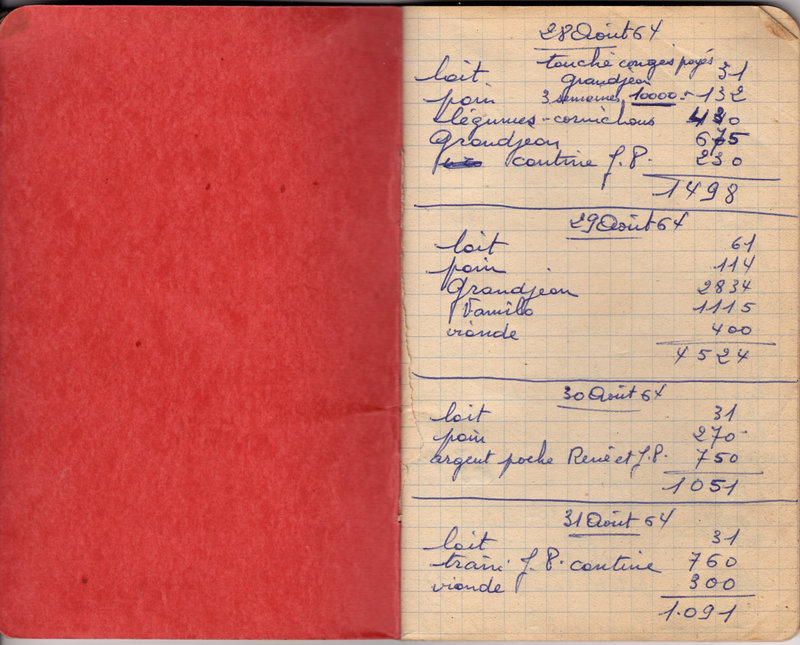 28 Août 64
touché conges payés
lait Grandjean 31
pain 3 semaines 10000 - 132
légumes - cornichons 430
Grandjean 675
cantine J.P. 230
1498
29 Août 64
lait 61
pain 114
Grandjean 2834
Familo 1115
viande 400
4524
30 Août 64
lait 31
pain 270
argent poche René et J.P. 750
1051
31 Août 64
lait 31
train J.P. cantine 760
viande 300
1.091